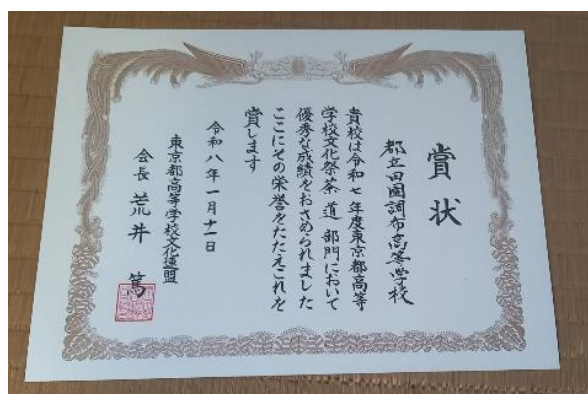 賞状
都立田園調布高等学校
貴校は令和七年度東京都高等
学校文化祭茶道部門において
優秀な成績をおさめられました
ここにその栄誉をたたえこれを
賞します
令和八年一月十一日
東京都高等学校文化連盟
会長 荒井 篤